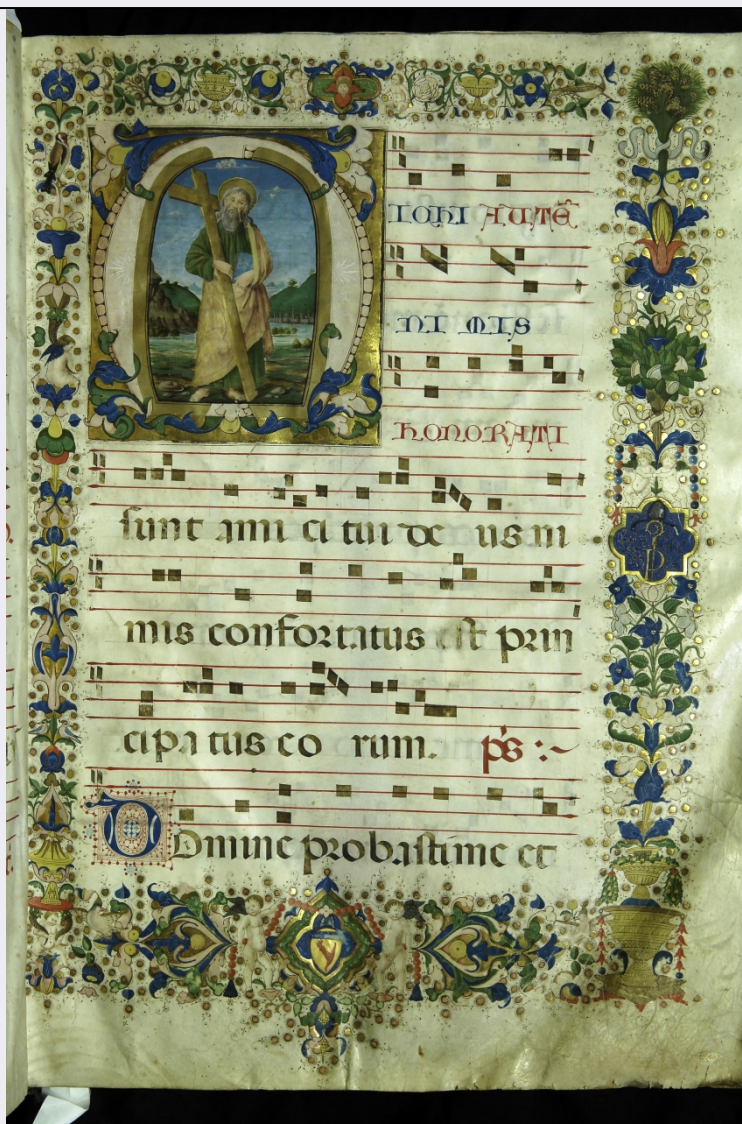 M
IOHI AUTĒ
NI MIS
HONORATI
sunt ami ci tui de us ni
mis confortatus est prin
cipa tus co rum. ps :~
D Omine probasti me et